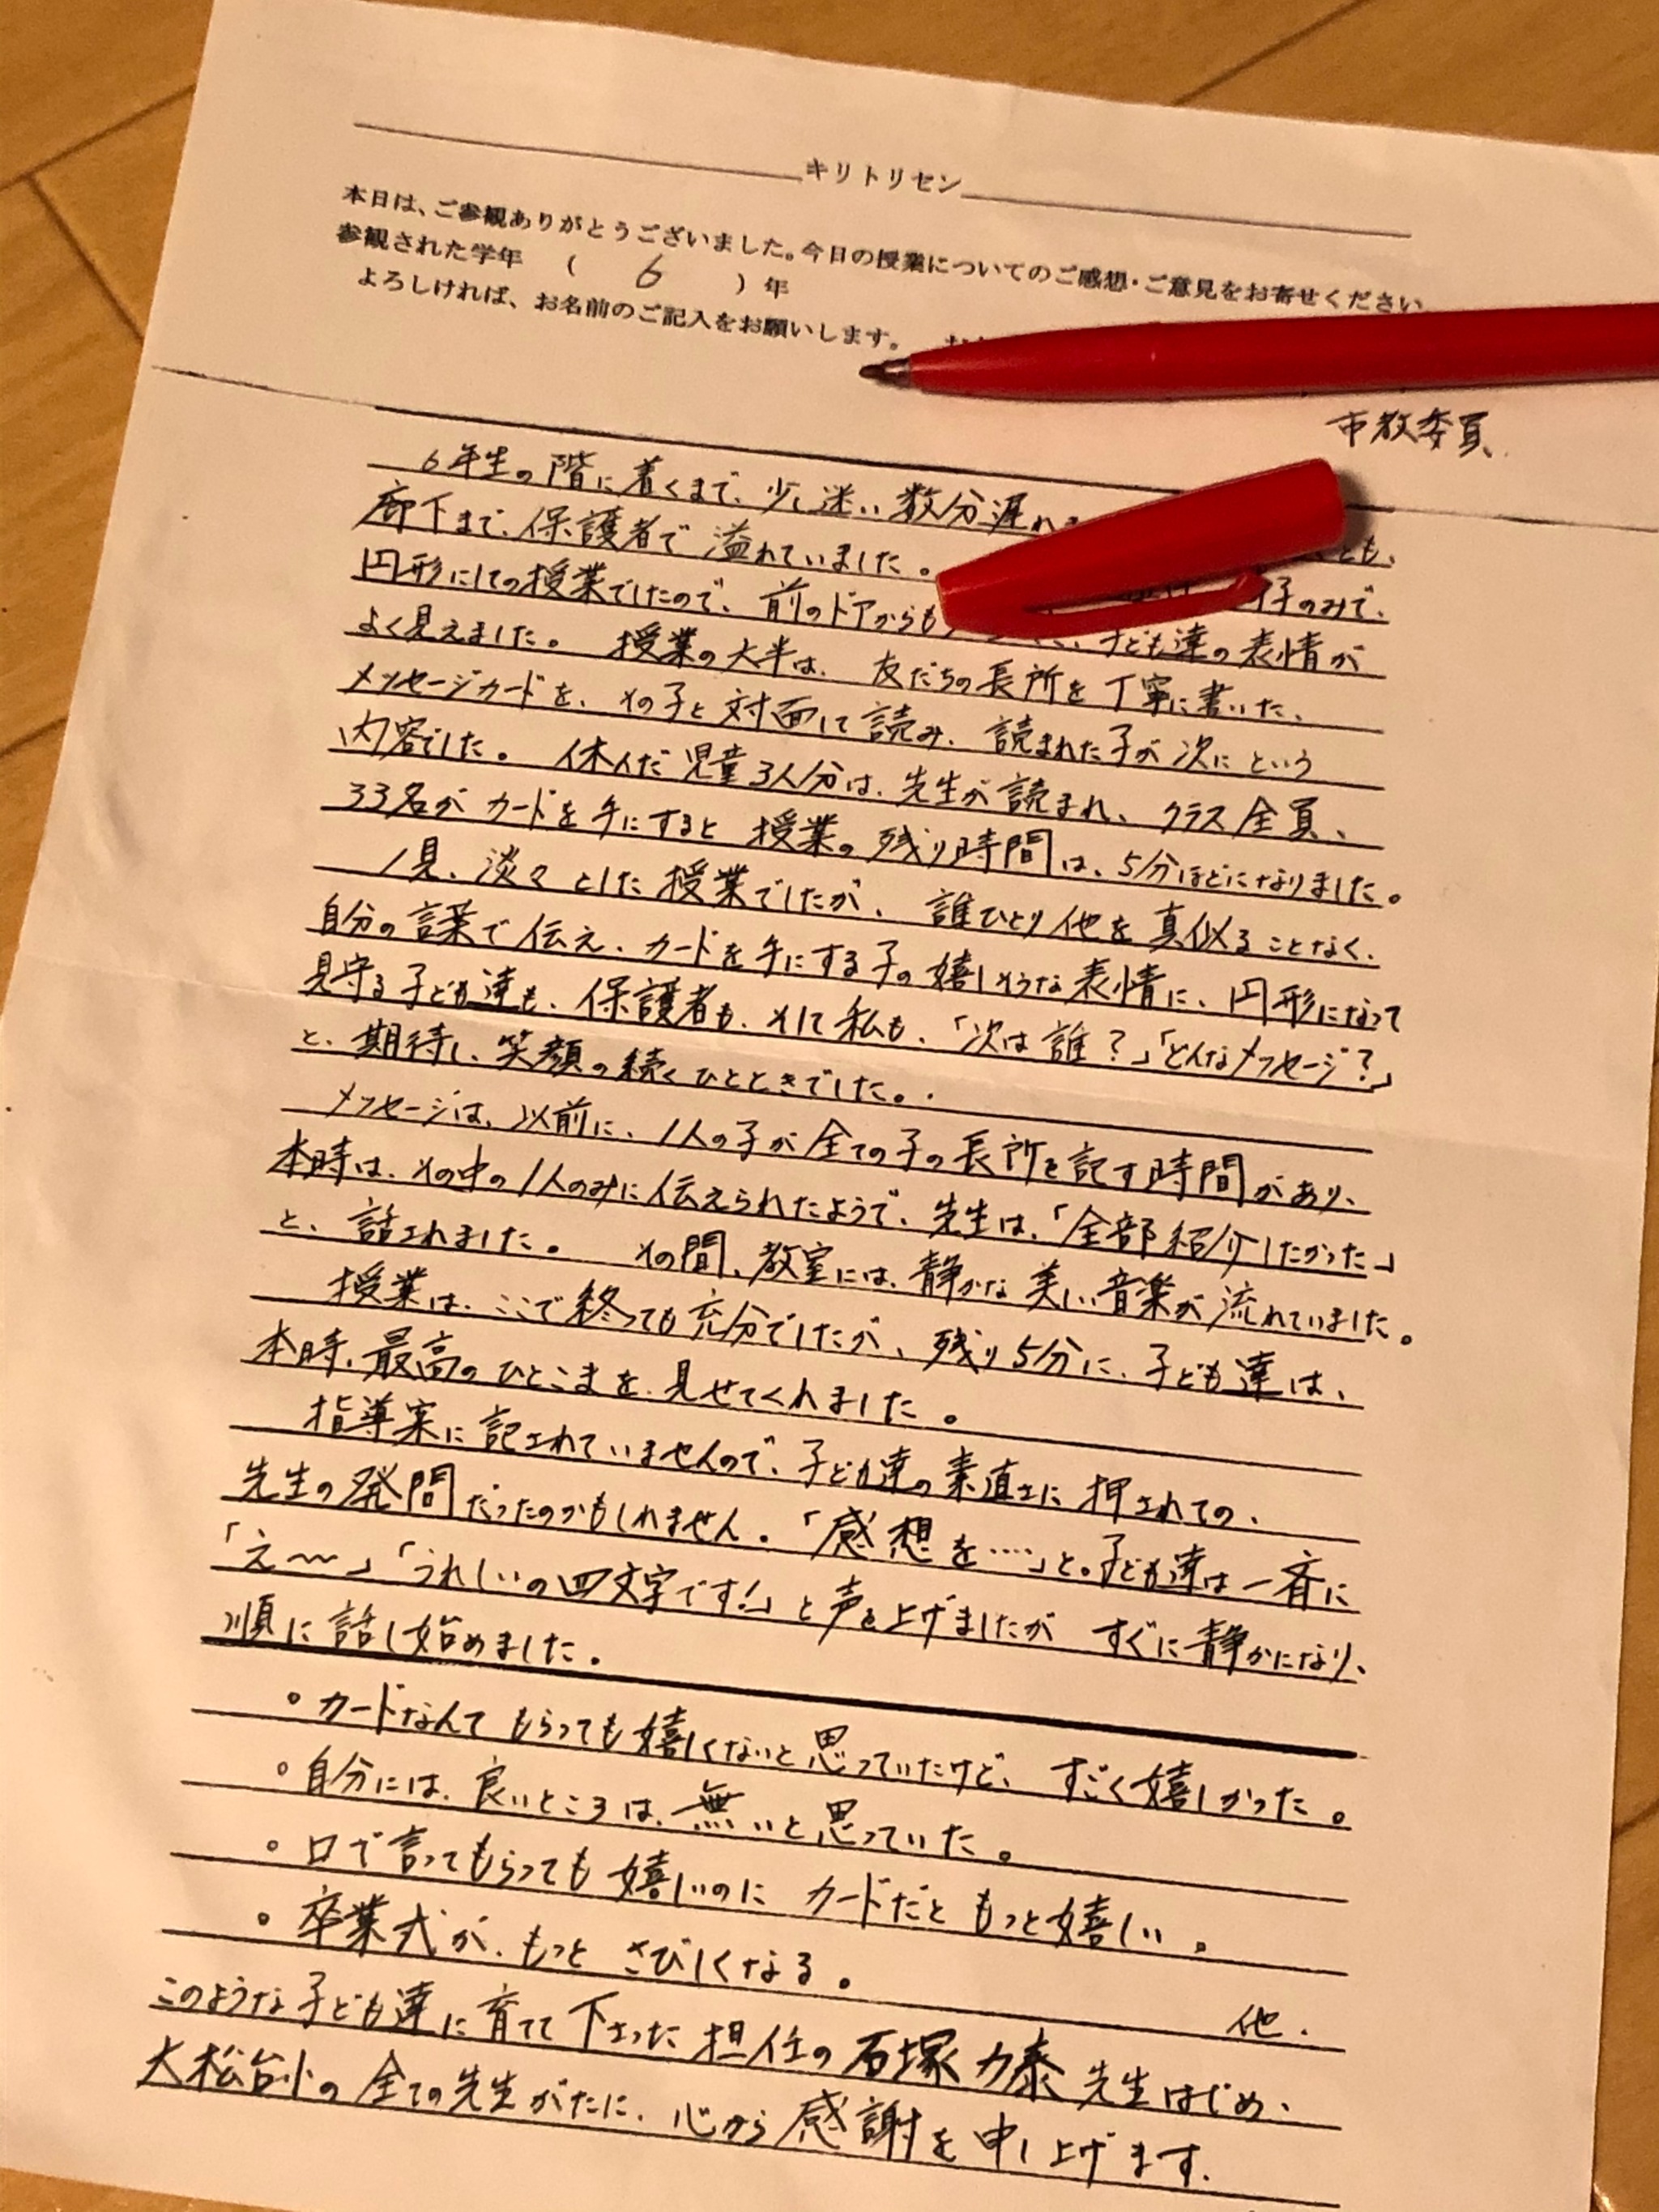 キリトリセン
本日は、ご参観ありがとうございました。今日の授業についてのご感想・ご意見をお寄せください
参観された学年 ( 6 ) 年
よろしければ、お名前のご記入をお願いします。
市教委員
6年生の階に着くまで、少し迷い数分遅れ
廊下まで、保護者で溢れていました。 とも、
円形にしての授業でしたので、前のドアからも 子のみで、
よく見えました。 授業の大半は、友だちの長所を丁寧に書いた、 子ども達の表情が
メッセージカードを、その子と対面して読み、読まれた子が次にという
内容でした。 休んだ児童3人分は、先生が読まれ、クラス全員、
33名がカードを手にすると授業の残り時間は、5分ほどになりました。
1見、淡々とした授業でしたが、誰ひとり他を真似ることなく、
自分の言葉で伝え、カードを手にする子の嬉しそうな表情に、円形になって
見守る子ども達も、保護者も、そして私も、「次は誰?」「どんなメッセージ?」
と、期待し、笑顔の続くひとときでした。
メッセージは、以前に、1人の子が全ての子の長所を記す時間があり、
本時は、その中の1人のみに伝えられたようで、先生は、「全部紹介したかった」
と、話されました。 その間、教室には、静かな美しい音楽が流れていました。
授業は、ここで終っても充分でしたが、残り5分に、子ども達は、
本時、最高のひとこまを、見せてくれました。
指導案に記されていませんので、子ども達の素直さに押されての、
先生の発問だったのかもしれません。「感想を‥‥」と。子ども達は一斉に
「え〜〜」「うれしいの四文字です!」と声を上げましたが すぐに静かになり、
順に話し始めました。
。カードなんてもらっても嬉しくないと思っていたけど、すごく嬉しかった。
。自分には、良いところは、無いと思っていた。
。口で言ってもらっても嬉しいのに カードだともっと嬉しい。
。卒業式が、もっと さびしくなる。
他.
このような子ども達に育てて下さった担任の石塚力泰先生はじめ、
大松台小の全ての先生がたに、心から感謝を申し上げます.